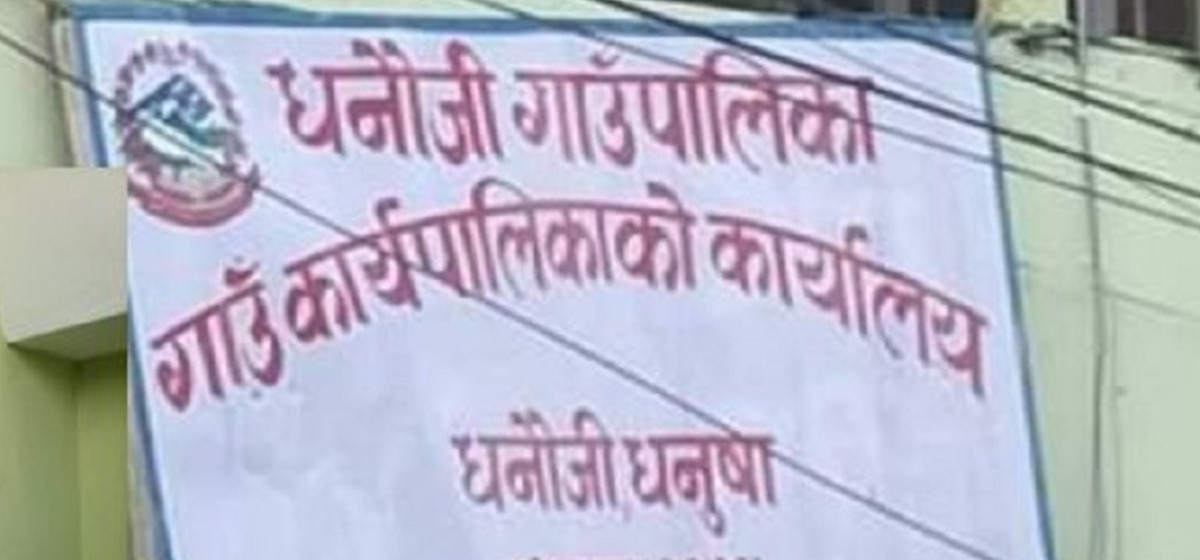 धनौजी गाउँपालिका
गाउँ कार्यपालिकाको कार्यालय
धनौजी, धनुषा